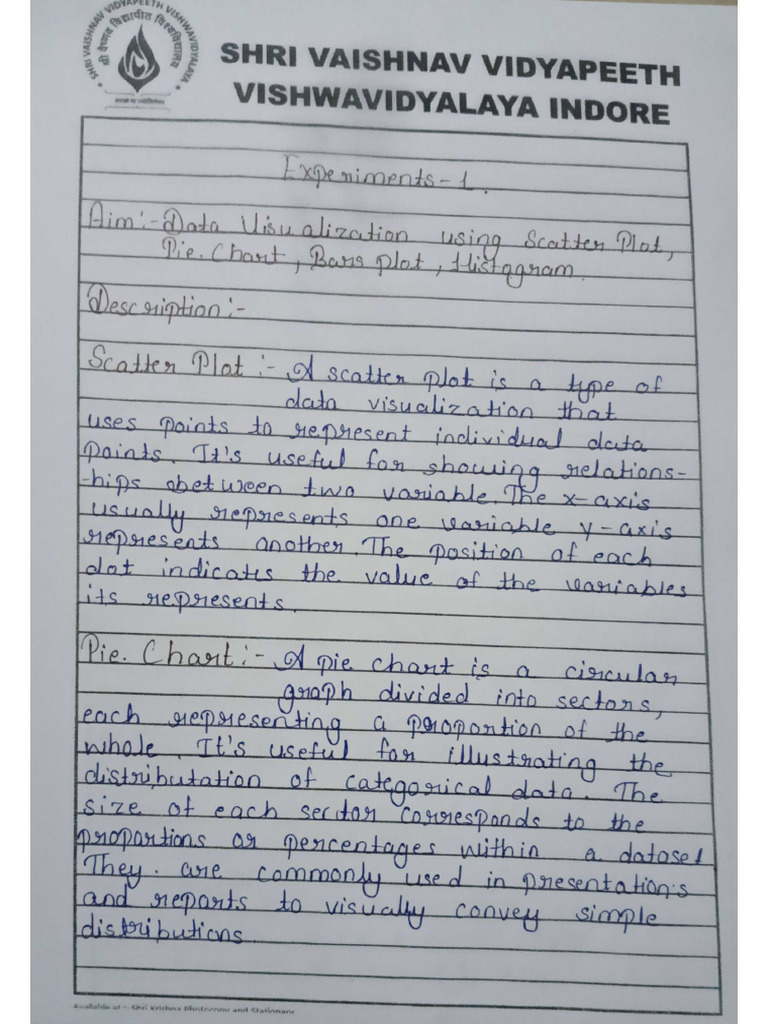 SHRI VAISHNAV VIDYAPEETH VISHWAVIDYALAYA
श्री वैष्णव विद्यापीठ विश्वविद्यालय
SHRI VAISHNAV VIDYAPEETH
VISHWAVIDYALAYA INDORE
Experiments-1.
Aim:- Data Visualization using Scatter Plot,
Pie. Chart, Bars plot, Histogram.
Description:-
Scatter Plot :- A scatter plot is a type of
data visualization that
uses points to represent individual data
points. It's useful for showing relations-
-hips between two variable. The x-axis
usually represents one variable y-axis
represents another. The position of each
dot indicates the value of the variables
its represents.
Pie. Chart :- A pie chart is a circular
graph divided into sectors,
each representing a proportion of the
whole. It's useful for illustrating the
distributation of categorical data. The
size of each sector corresponds to the
proportions or percentages within a dataset
They. are commonly used in presentations
and reports to visually convey simple
distributions.
Available at :- Shri Krishna Photocopy and Stationary